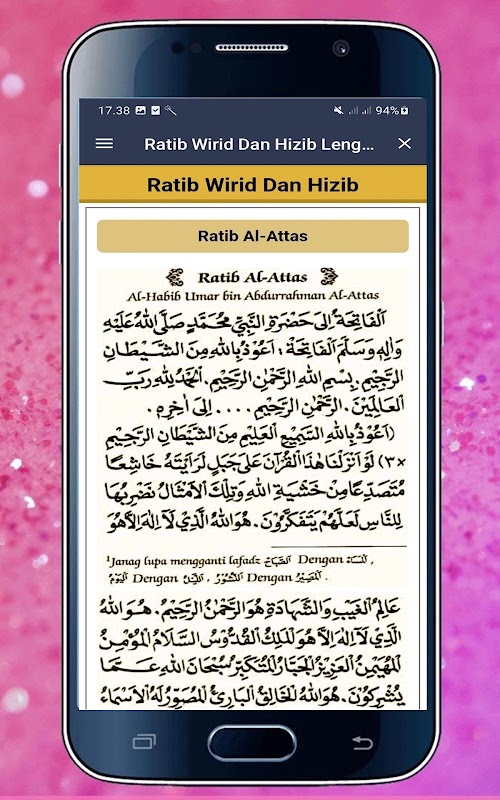 17.38
94%
Ratib Wirid Dan Hizib Leng...
Ratib Wirid Dan Hizib
Ratib Al-Attas
Ratib Al-Attas
Al-Habib Umar bin Abdurrahman Al-Attas
اَلْفَاتِحَةُ اِلَى حَضْرَةِ النَّبِيِّ مُحَمَّدٍ صَلَّى اللهُ عَلَيْهِ
وَاٰلِهِ وَسَلَّمَ اَلْفَاتِحَةُ : اَعُوْذُ بِاللهِ مِنَ الشَّيْطَانِ
الرَّجِيْمِ. بِسْمِ اللهِ الرَّحْمٰنِ الرَّحِيْمِ. اَلْحَمْدُ لِلّٰهِ رَبِّ
الْعَالَمِيْنَ. الرَّحْمٰنِ الرَّحِيْمِ .... اِلَى اٰخِرِهِ .
(اَعُوْذُ بِاللهِ السَّمِيْعِ الْعَلِيْمِ مِنَ الشَّيْطَانِ الرَّجِيْمِ
×٣) لَوْ اَنْزَلْنَا هٰذَا الْقُرْاٰنَ عَلَى جَبَلٍ لَرَاَيْتَهُ خَاشِعًا
مُتَصَدِّعًا مِنْ خَشْيَةِ اللهِ وَتِلْكَ الْاَمْثَالُ نَضْرِبُهَا
لِلنَّاسِ لَعَلَّهُمْ يَتَفَكَّرُوْنَ. هُوَ اللهُ الَّذِيْ لَا اِلٰهَ اِلَّا هُوَ
¹Janag lupa mengganti lafadz الصَّبَاحُ Dengan الْمَسَاءُ,
الْيَوْمُ Dengan اللَّيْلُ, النُّشُوْرُ Dengan الْمَصِيْرُ.
عَالِمُ الْغَيْبِ وَالشَّهَادَةِ هُوَ الرَّحْمٰنُ الرَّحِيْمُ. هُوَ اللهُ
الَّذِيْ لَا اِلٰهَ اِلَّا هُوَ الْمَلِكُ الْقُدُّوْسُ السَّلَامُ الْمُؤْمِنُ
الْمُهَيْمِنُ الْعَزِيْزُ الْجَبَّارُ الْمُتَكَبِّرُ سُبْحَانَ اللهِ عَمَّا
يُشْرِكُوْنَ. هُوَ اللهُ الْخَالِقُ الْبَارِئُ الْمُصَوِّرُ لَهُ الْاَسْمَاءُ